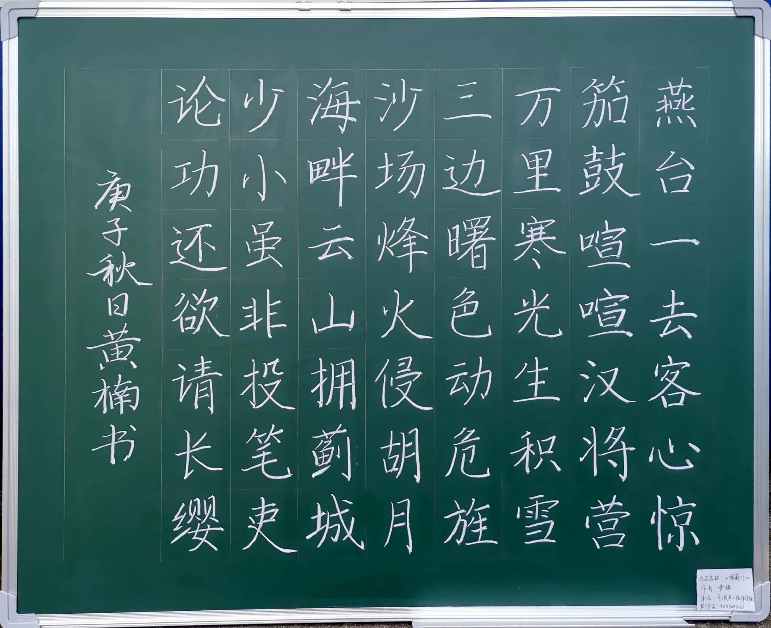 燕台一去客心惊
笳鼓喧喧汉将营
万里寒光生积雪
三边曙色动危旌
沙场烽火侵胡月
海畔云山拥蓟城
少小虽非投笔吏
论功还欲请长缨
庚子秋日黄楠书